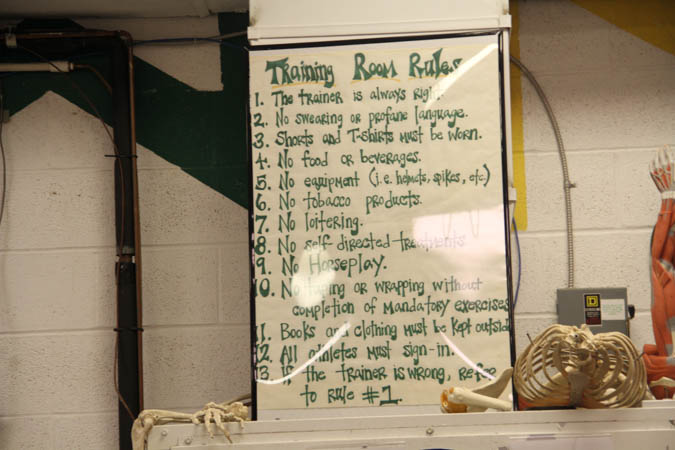 Training Room Rules
1. The trainer is always right.
2. No swearing or profane language.
3. Shorts and T-shirts must be worn.
4. No food or beverages.
5. No equipment (i.e. helmets, spikes, etc.)
6. No tobacco products.
7. No loitering.
8. No self-directed treatments
9. No Horseplay.
10. No taping or wrapping without
completion of Mandatory exercises
11. Books and clothing must be kept outside
12. All athletes must sign-in.
13. If the trainer is wrong, refer
to rule #1.